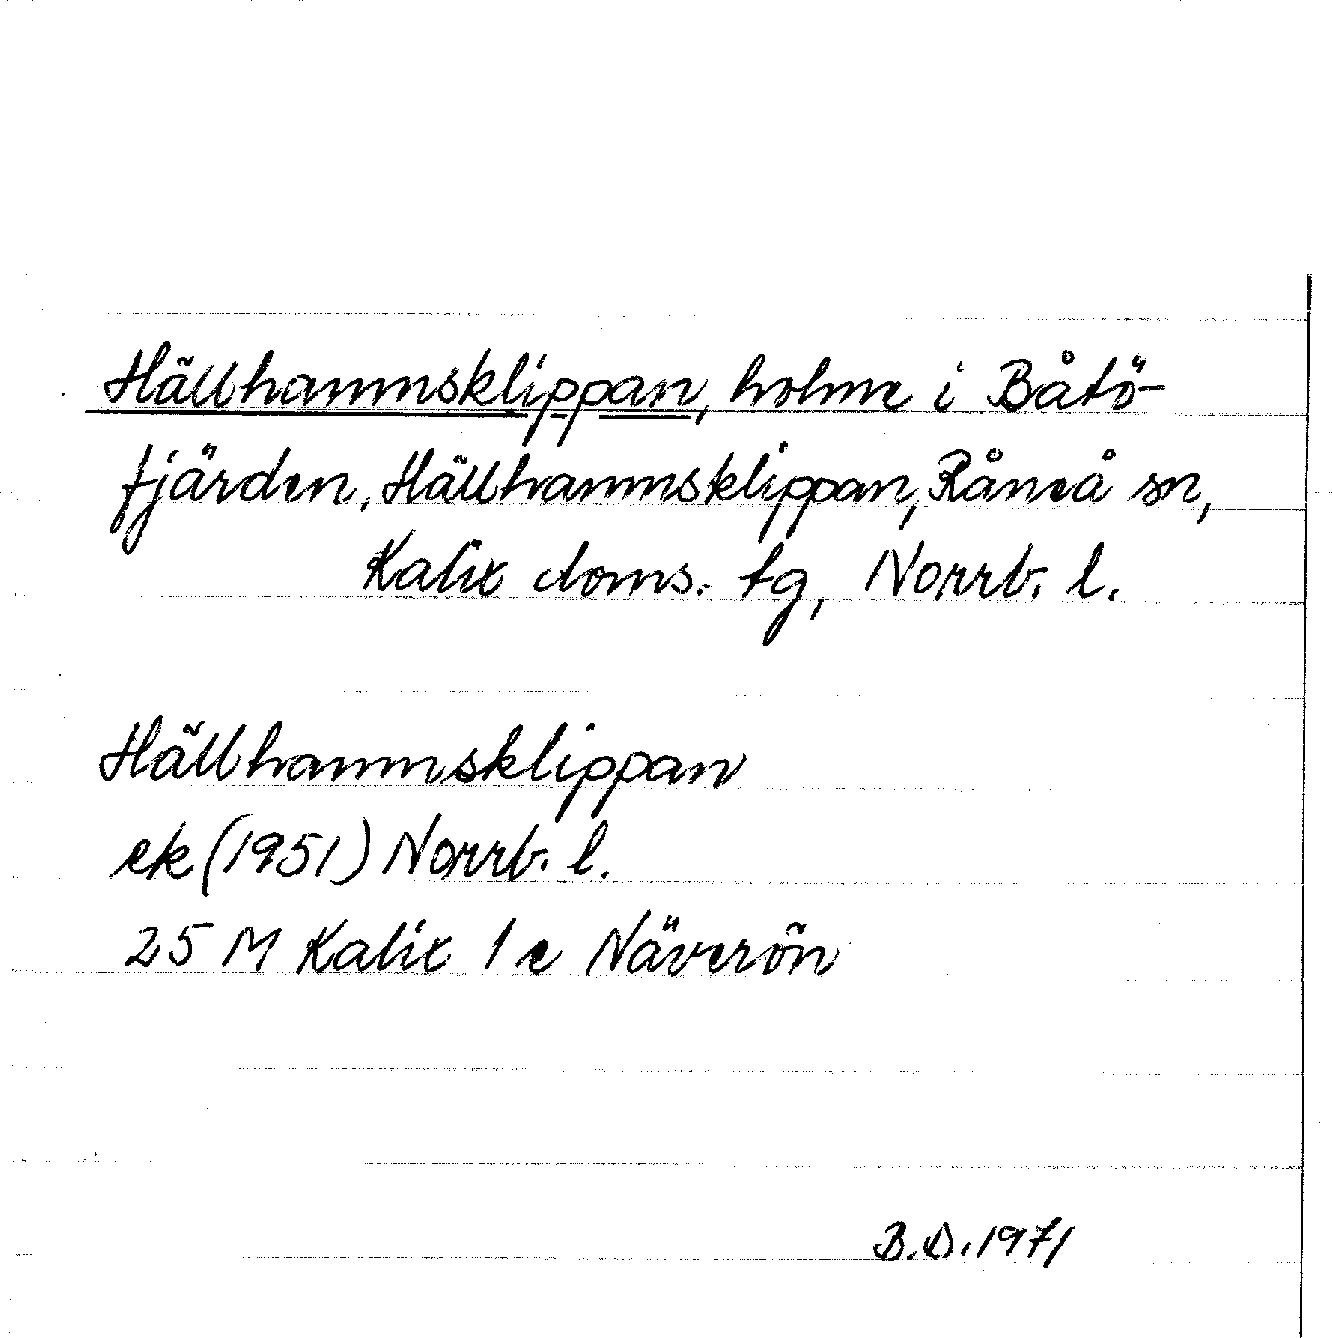 Hällhamnsklippan, holme i Båtö-
fjärden, Hällhamnsklippan, Råneå sn,
Kalix doms. tg, Norrb. l.
Hällhamnsklippan
ek (1951) Norrb. l.
25 M Kalix 1 e Näverön
B.D. 1971